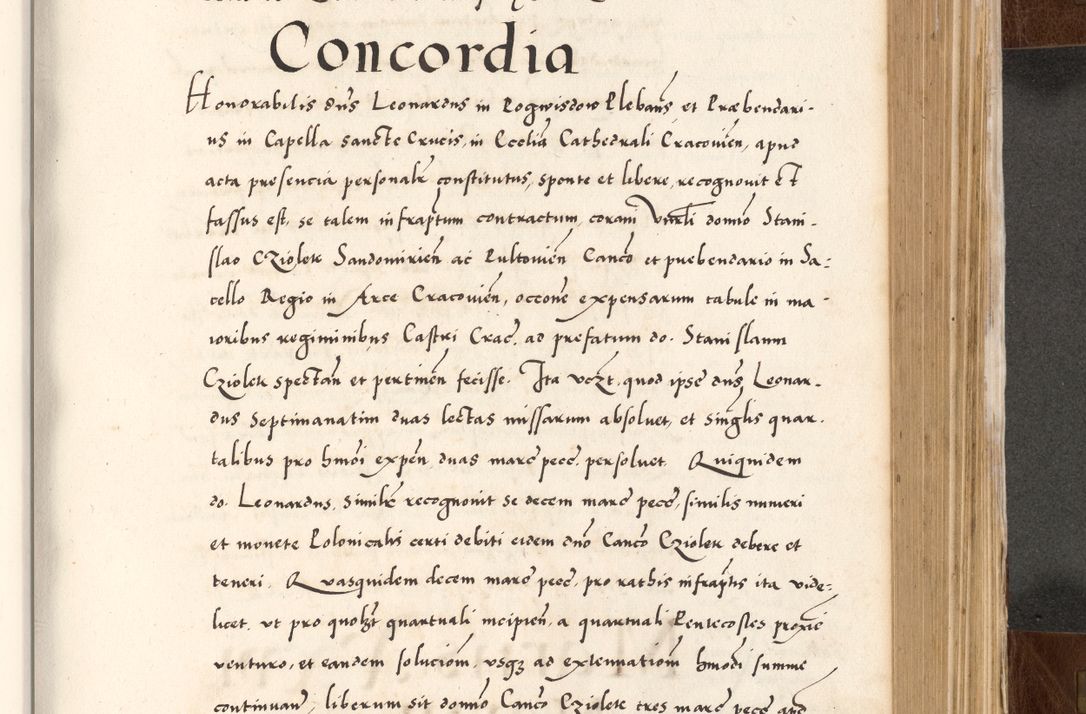 Concordia
Honorabilis dns Leonardus in Rogwisdow Plebans et Præbendari-
us in Capella sancte Crucis, in Ecclia Cathedrali Cracovien, apud
acta presencia personalr constitutus, sponte et libere, recognouit et
fassus est, se talem infraptum contractum, coram Vnrli domo Stani-
slao Cziolek Sandomirien ac Pultovien Canco et prebendario in Sa:
cello Regio in Arce Cracovien, occone expensarum tabule in ma-
ioribus regiminibus Castri Crac. ad prefatum do. Stanislaum
Cziolek spectan et pertinen fecisse. Ita vczt, quod ipse dns Leonar-
dus Septimanatim duas lectas missarum absoluet, et singlis quar-
talibus pro hmoi expen, duas marc pecc. persoluet. Quiquidem
do. Leonardus, Similr recognouit se decem marc pecc, similis numeri
et monete Polonicalis certi debiti eidem dno Canco Cziolek debere et
teneri. Quasquidem decem marc pecc, pro rathis infraptis ita vide:
licet, vt pro quolzt quartuali incipien, a quartuali Pentecostes proxie
venturo, et eandem soluciom, vsqz ad extenuatiom hmodi summe
continuan, liberum sit domo Canco Cziolek tres marc pecc apd